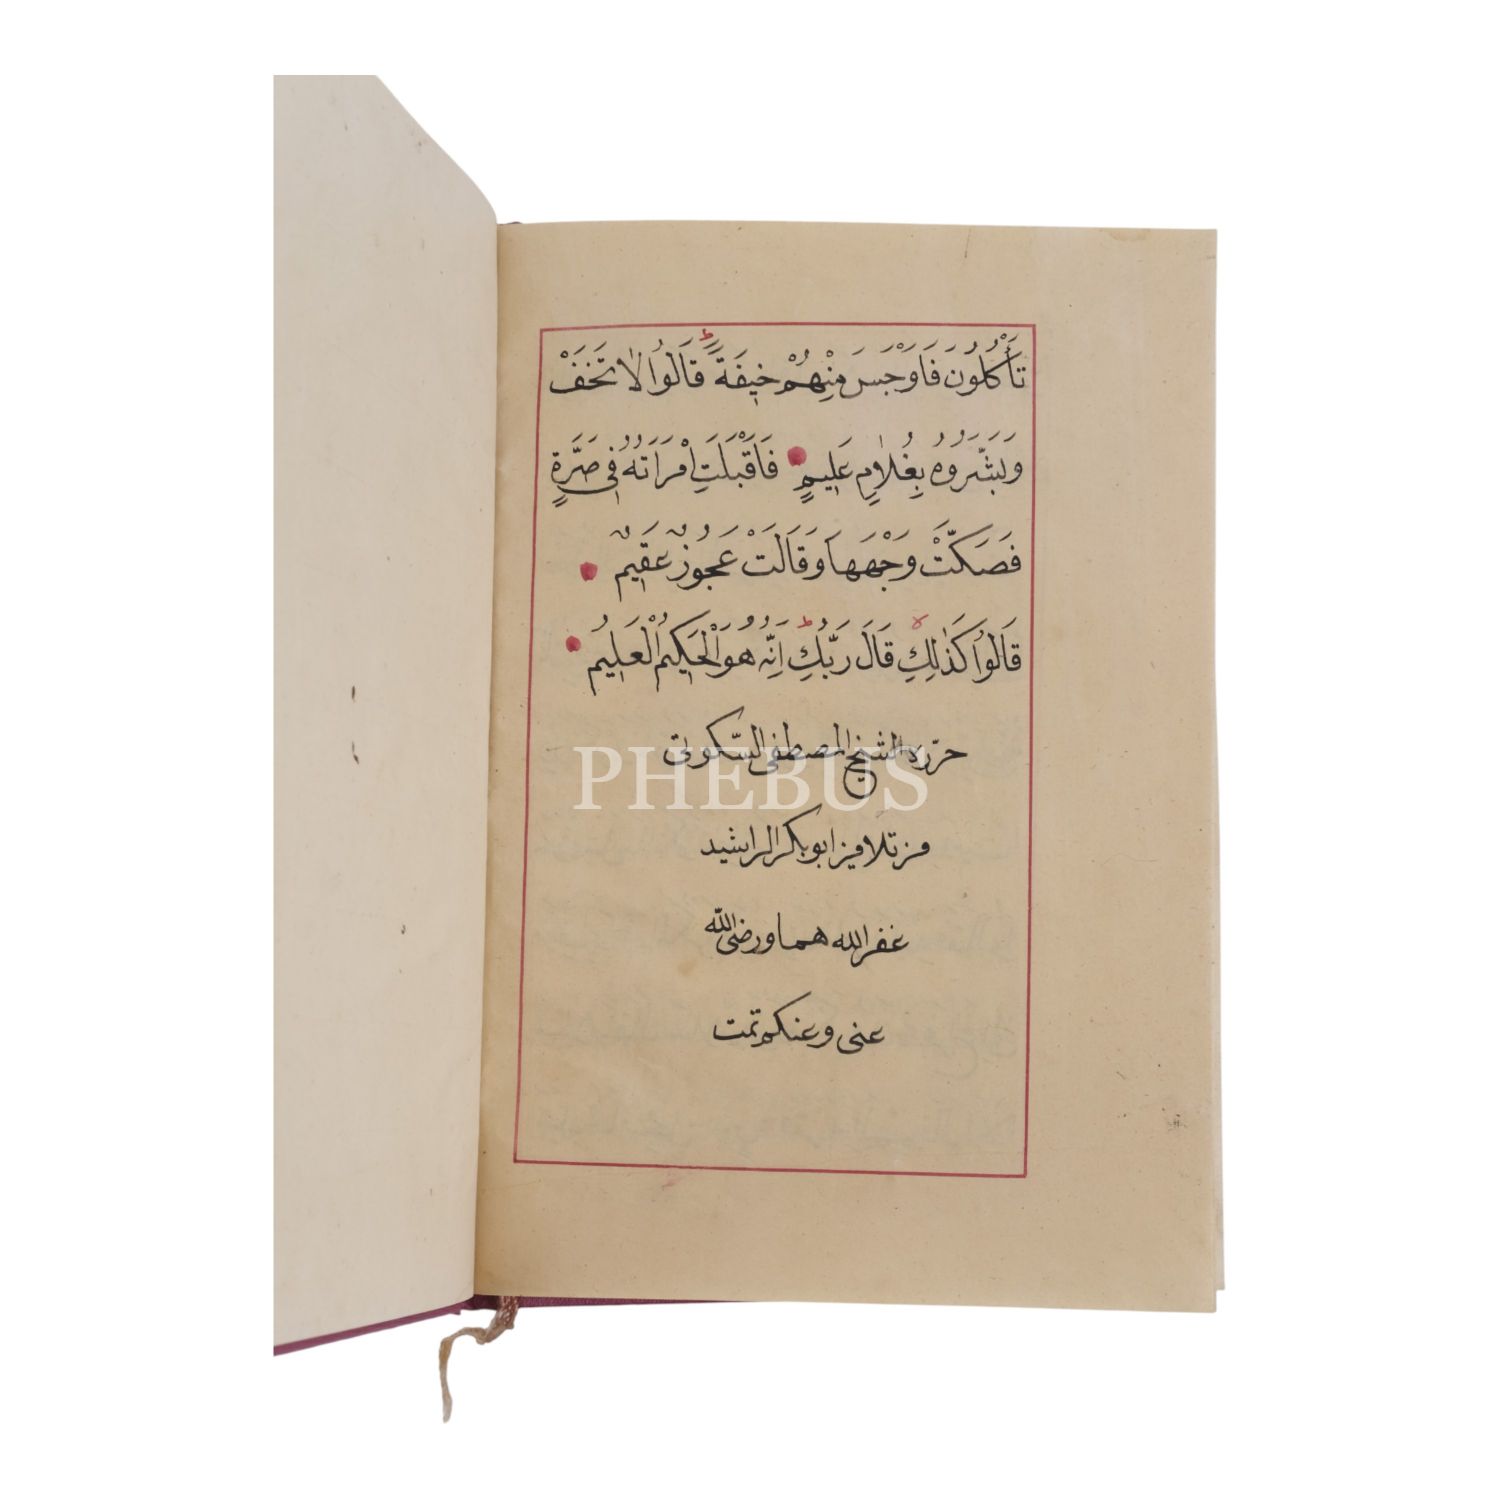 تَأْكُلُونَ فَاَوْجَسَ مِنْهُمْ خِيفَةً ط قَالُوا لَا تَخَفْ
وَبَشَّرُوهُ بِغُلَامٍ عَلِيمٍ فَاَقْبَلَتِ امْرَاَتُهُ فِي صَرَّةٍ
فَصَكَّتْ وَجْهَهَا وَقَالَتْ عَجُوزٌ عَقِيمٌ
قَالُوا كَذٰلِكِ لا قَالَ رَبُّكِ ط اِنَّهُ هُوَ الْحَكِيمُ الْعَلِيمُ
حرّره الشيخ المصطفى السّكوتى
PHEBUS
من تلاميز ابو بكر الراشيد
غفر الله هما ورضى الله
عنى وعنكم تمت